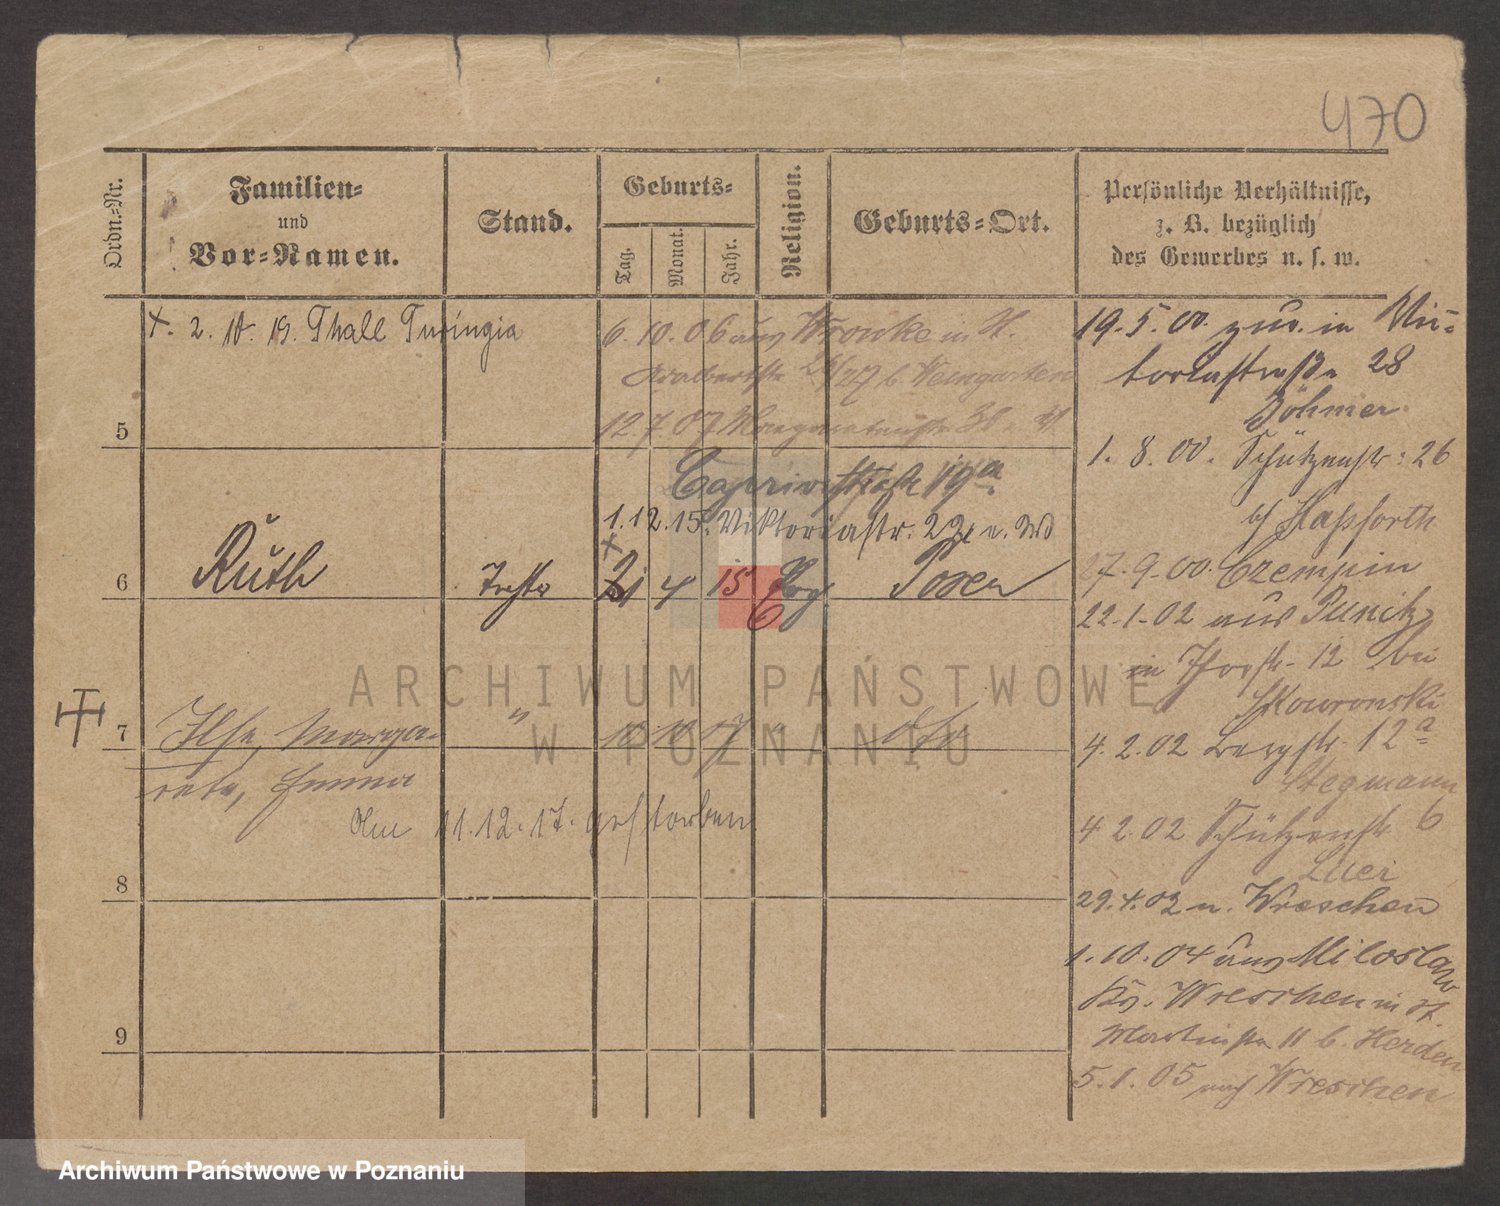 470
Ordn.-Nr.
Familien-
und
Vor-Namen.
Stand.
Geburts-
Tag.
Monat.
Jahr.
Religion.
Geburts-Ort.
Persönliche Verhältnisse,
z. B. bezüglich
des Gewerbes u. s. w.
+. 2. 10. 19. Thall Turingia
6.10.06 aus Wronke in St.
Adalbertstr 26/27 b. Weingarten
12.7.07
5
Caprivistraße 19a
1.12.15. Viktoriastr. 22
6 Ruth Tochter 21 4 15 Evg Posen
7 Ilse, Marga-
rete, Emma
Am 11.12.17. gestorben
8
9
19.5.00. zuv. in Vic-
toriastraße 28
Böhmer.
1. 8. 00. Schützenstr: 26
bei Hapforth
27.9.00. Czempin
22.1.02 aus Punitz
in Thorstr. 12 bei
Skowronski
4.2.02 Bergstr. 12a
Stegmann
4 2.02 Schützenstr 6
Luer
29.4.02 n. Wreschen
1.10.04 aus Miloslaw
Kr. Wreschen in St.
Martinstr 11 b. Herden
5.1.05 nach Wreschen
ARCHIWUM PAŃSTWOWE
W POZNANIU
Archiwum Państwowe w Poznaniu